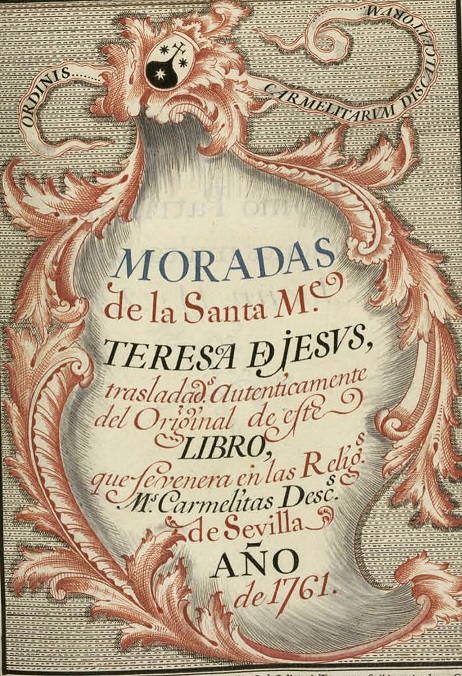 ORDINIS
CARMELITARVM DISCALCIATORVM
MORADAS
de la Santa M.ᵉ
TERESA DE JESVS,
trasladad.ˢ autenticamente
del Original de este
LIBRO,
que se venera en las Relig.ˢ
M.ˢ Carmelitas Desc.ˢ
de Sevilla
AÑO
de 1761.